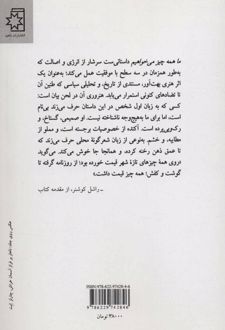 انتشارات ناهید
ما همه چیز می‌خواهیم داستانی‌ست سرشار از انرژی و اصالت که
به‌طور همزمان در سه سطح با موفقیت عمل می‌کند: به‌عنوان یک
اثر هنری بهت‌آور، مستندی از تاریخ، و تحلیلی سیاسی که طنین آن
با تضادهای کنونی استمرار می‌یابد. هنروری آن در لحن بیان است:
کسی که به زبان اول شخص در این داستان حرف می‌زند بی‌نام
است، اما برای ما به‌هیچ‌وجه ناشناخته نیست. او صمیمی، گستاخ، و
رک‌وبی‌پرده است. آکنده از خصوصیات برجسته است، و مملو از
مطایبه، و خشم. به‌نوعی از زبان شعرگونهٔ محلی حرف می‌زند که
تا عمق ذهن رخنه کرده، و همانجا جا خوش می‌کند. می‌گوید
«روی همهٔ چیزهای تازهٔ شهر قیمت خورده بود؛ از روزنامه گرفته تا
گوشت و کفش؛ همه چیز قیمت داشت.»
ـ راشل کوشنر، از مقدمه کتاب
ISBN 978-622-97428-4-6
9 786229 742846
۳۸۰۰۰ تومان